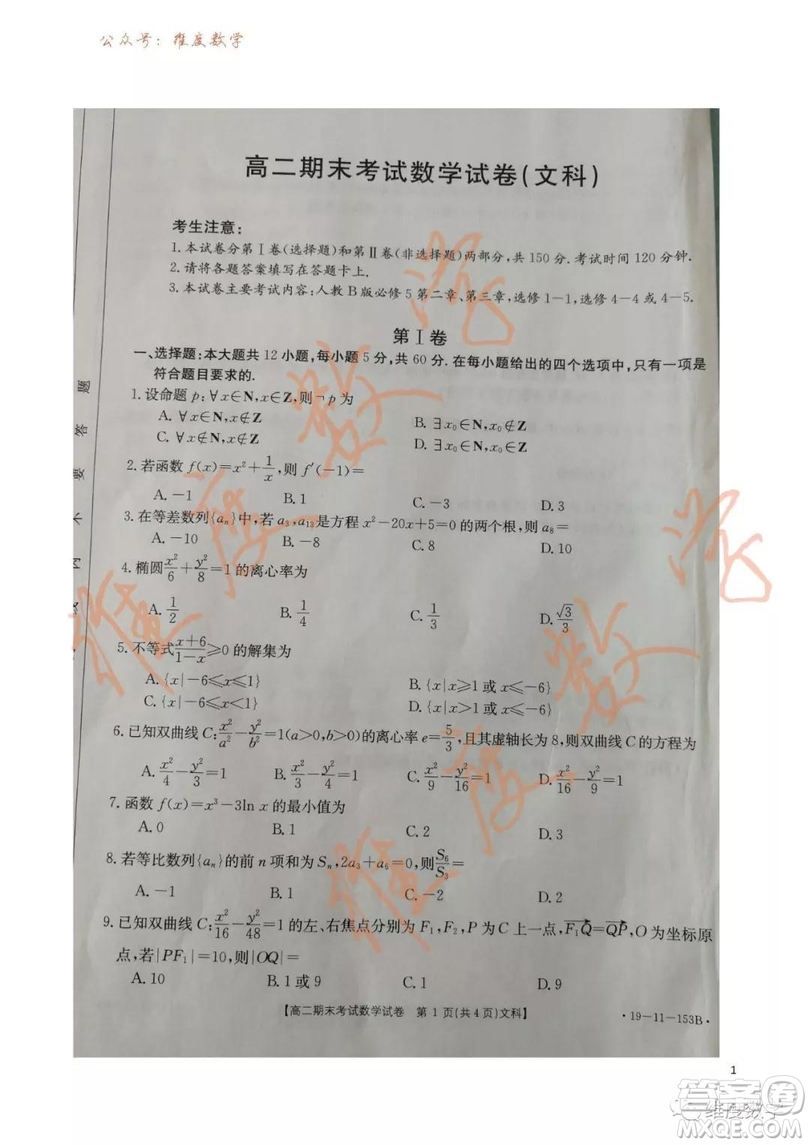 公众号：维度数学
高二期末考试数学试卷(文科)
考生注意:
1.本试卷分第Ⅰ卷(选择题)和第Ⅱ卷(非选择题)两部分,共150分.考试时间120分钟.
2.请将各题答案填写在答题卡上.
3.本试卷主要考试内容:人教B版必修5第二章、第三章,选修1-1,选修4-4或4-5.
第Ⅰ卷
一、选择题:本大题共12小题,每小题5分,共60分.在每小题给出的四个选项中,只有一项是
符合题目要求的.
1.设命题p:∀x∈N,x∈Z,则¬p为
A.∀x∈N,x∉Z B.∃x₀∈N,x₀∉Z
C.∀x∉N,x∉Z D.∃x₀∈N,x₀∈Z
2.若函数f(x)=x²+1/x,则f′(-1)=
A.-1 B.1 C.-3 D.3
3.在等差数列{aₙ}中,若a₃,a₁₃是方程x²-20x+5=0的两个根,则a₈=
A.-10 B.-8 C.8 D.10
4.椭圆x²/6+y²/8=1的离心率为
A.1/2 B.1/4 C.1/3 D.√3/3
5.不等式(x+6)/(1-x)≥0的解集为
A.{x|-6≤x≤1} B.{x|x≥1或x≤-6}
C.{x|-6≤x<1} D.{x|x>1或x≤-6}
6.已知双曲线C:x²/a²-y²/b²=1(a>0,b>0)的离心率e=5/3,且其虚轴长为8,则双曲线C的方程为
A.x²/4-y²/3=1 B.x²/3-y²/4=1 C.x²/9-y²/16=1 D.x²/16-y²/9=1
7.函数f(x)=x³-3ln x的最小值为
A.0 B.1 C.2 D.3
8.若等比数列{aₙ}的前n项和为Sₙ,2a₃+a₆=0,则S₆/S₃=
A.-1 B.1 C.-2 D.2
9.已知双曲线C:x²/16-y²/48=1的左、右焦点分别为F₁,F₂,P为C上一点,F₁Q=QP,O为坐标原
点,若|PF₁|=10,则|OQ|=
A.10 B.1或9 C.1 D.9
【高二期末考试数学试卷 第1页(共4页)文科】
·19-11-153B·
1
维度数学
答题
要
不
内
维度数学
维度数学